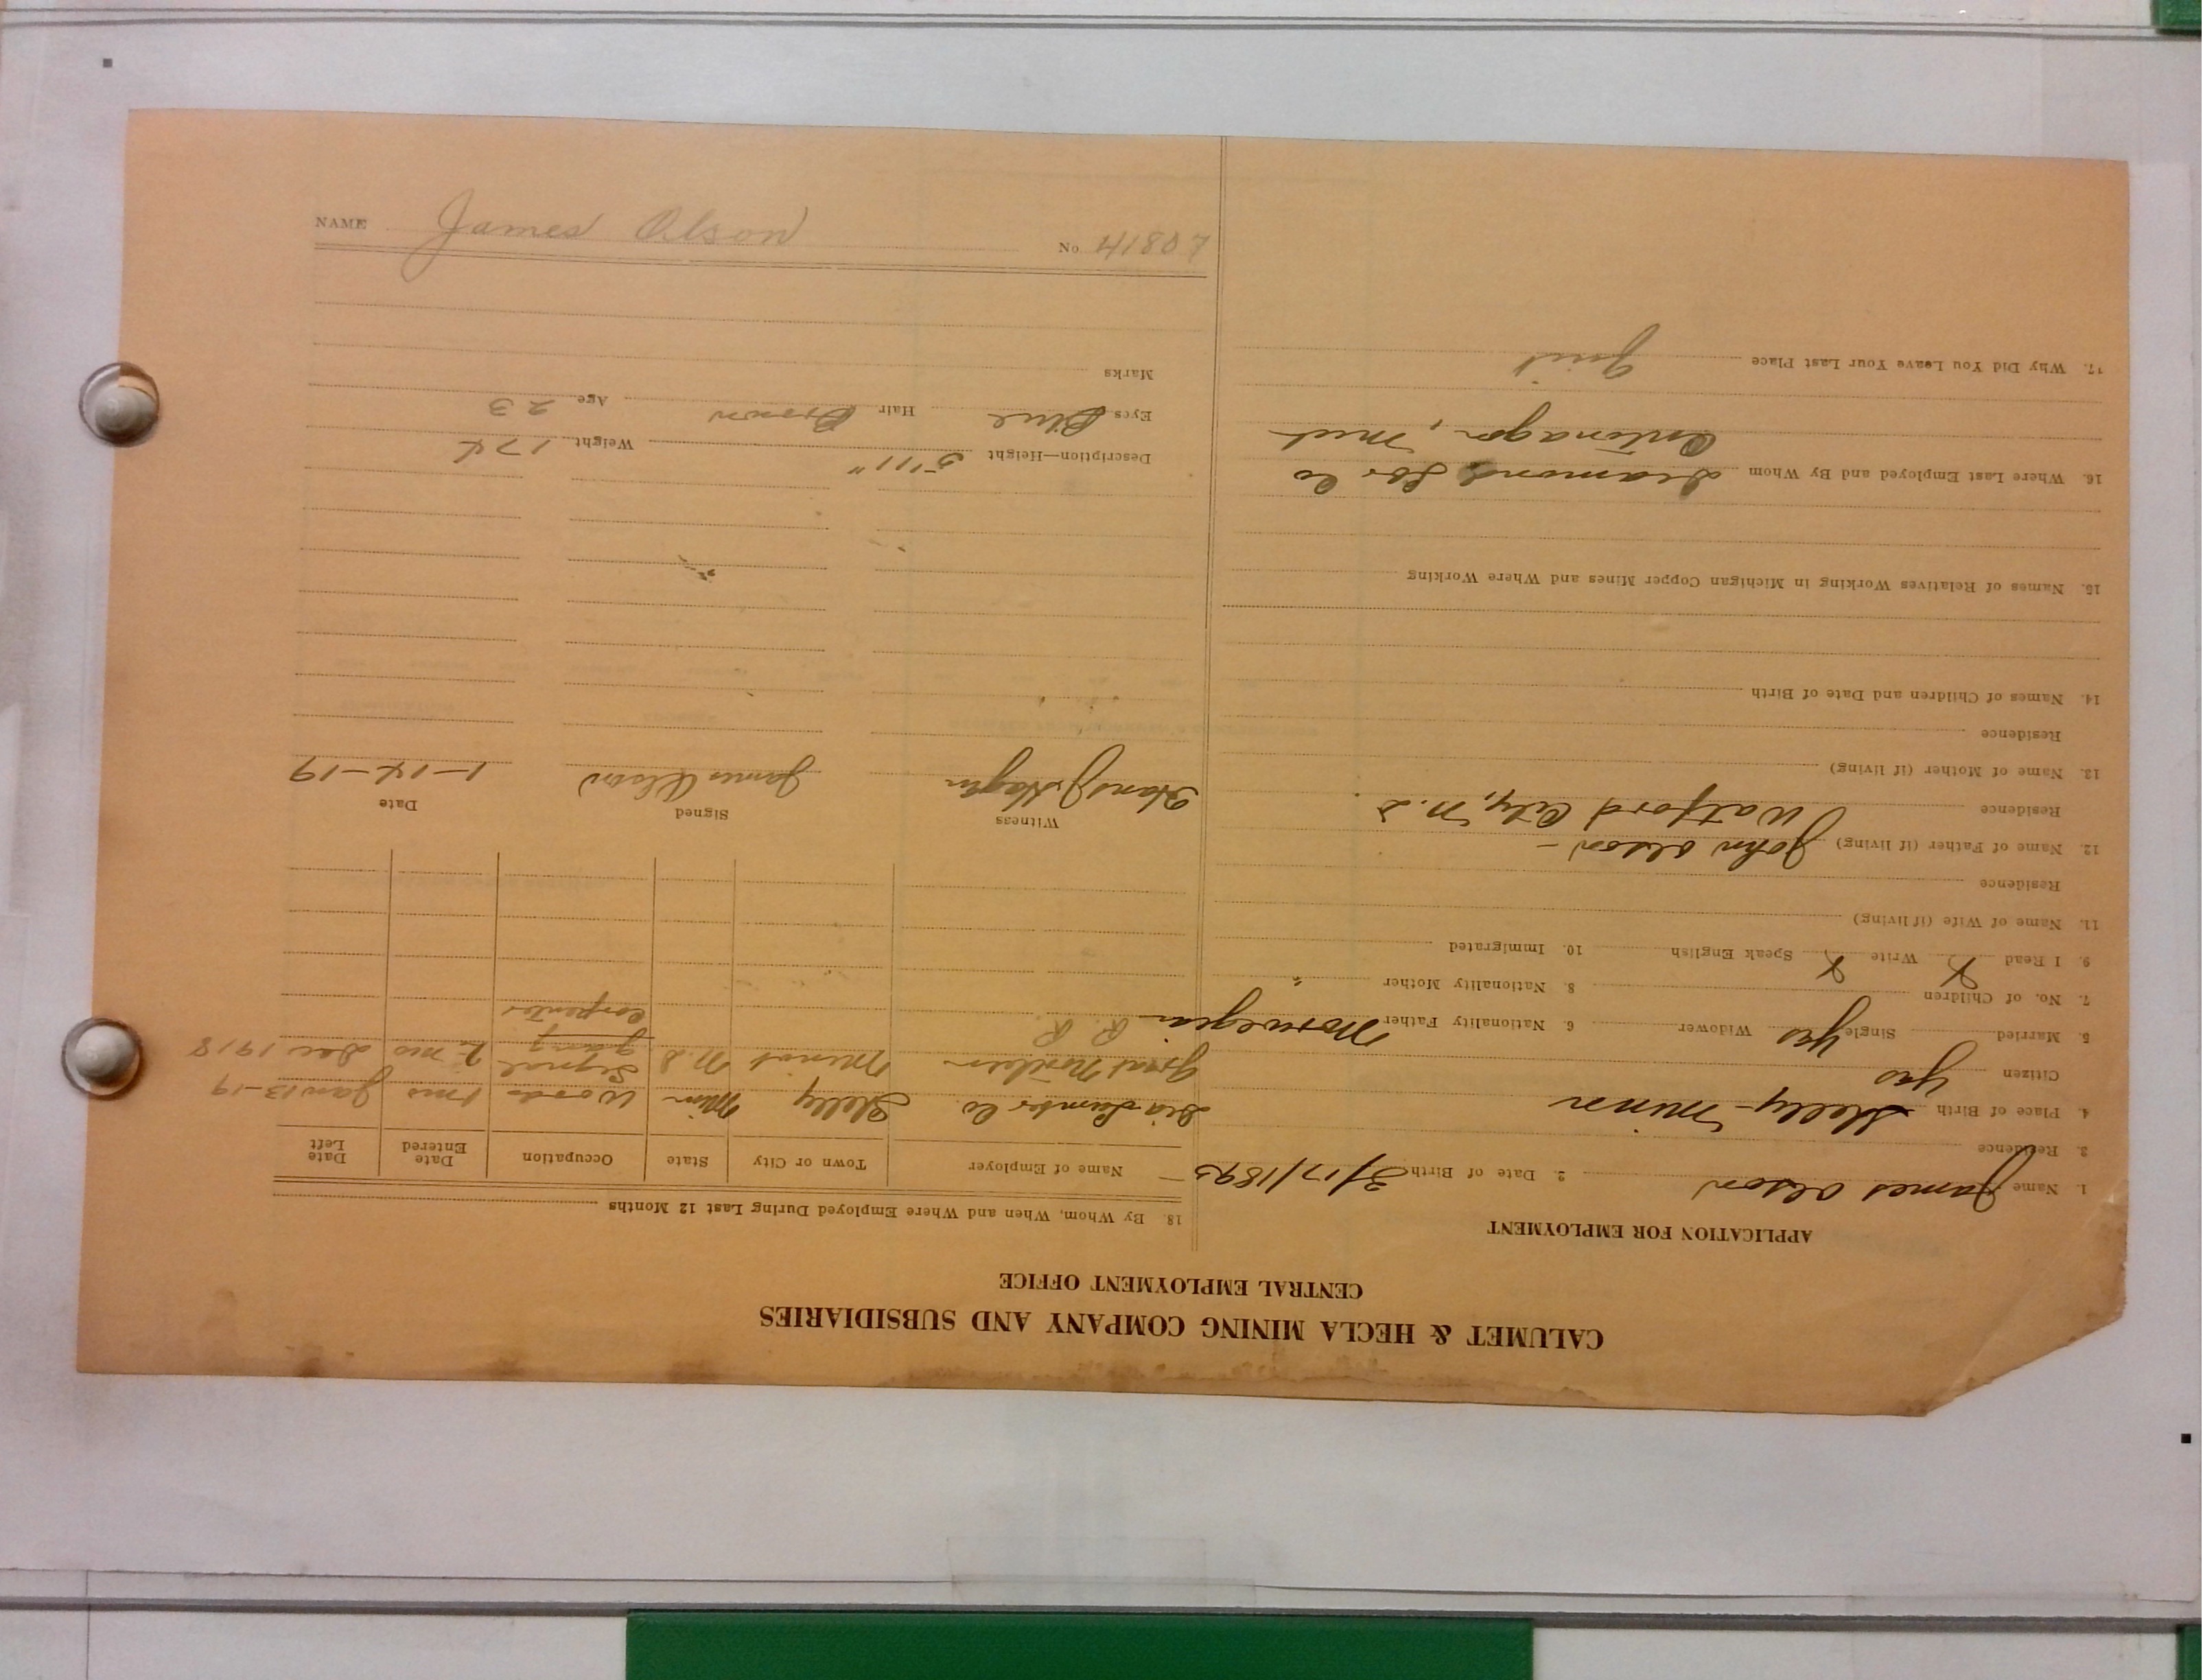 CALUMET & HECLA MINING COMPANY AND SUBSIDIARIES
CENTRAL EMPLOYMENT OFFICE
APPLICATION FOR EMPLOYMENT
1. Name James Olson 2. Date of Birth 3/17/1895
3. Residence
4. Place of Birth Shelly - Minn
Citizen Yes
5. Married Single Yes Widower 6. Nationality Father Norwegian
7. No. of Children 8. Nationality Mother "
9. I Read X Write X Speak English 10. Immigrated
11. Name of Wife (if living)
Residence
12. Name of Father (if living) John Olson -
Residence Watford City, N.D
13. Name of Mother (if living)
Residence
14. Names of Children and Date of Birth
15. Names of Relatives Working in Michigan Copper Mines and Where Working
16. Where Last Employed and By Whom Diamond Lbr Co
Ontonagon, Mich
17. Why Did You Leave Your Last Place Quit
18. By Whom, When and Where Employed During Last 12 Months
Name of Employer Town or City State Occupation Date Entered Date Left
Dia Lumber Co Shelly Minn Woods 1 mo Jan 13-19
Great Northern R. R. Minot N.D Signal gang 2 mo Dec 1918
carpenter
Witness Signed Date
Hans J Hagen James Olson 1-14-19
Description—Height 5'11" Weight 174
Eyes Blue Hair Brown Age 23
Marks
NAME James Olson No 41807